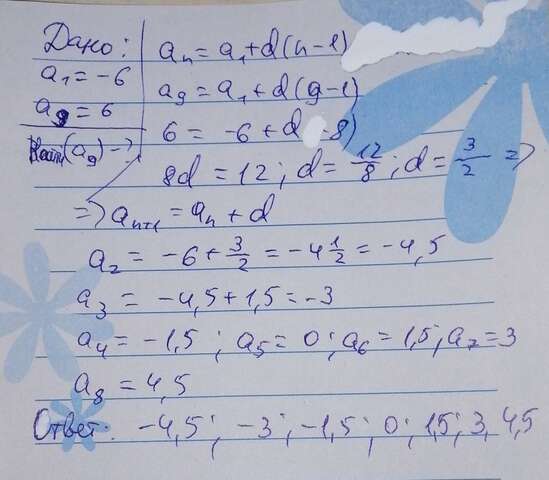 Дано:
a₁ = -6
a₉ = 6
(a₉) - ?
aₙ = a₁ + d(n-1)
a₉ = a₁ + d(9-1)
6 = -6 + d 8)
8d = 12; d = 12/8; d = 3/2 =>
=> aₙ₊₁ = aₙ + d
a₂ = -6 + 3/2 = -4 1/2 = -4,5
a₃ = -4,5 + 1,5 = -3
a₄ = -1,5 ; a₅ = 0; a₆ = 1,5; a₇ = 3
a₈ = 4,5
Ответ: -4,5; -3; -1,5; 0; 1,5; 3, 4,5